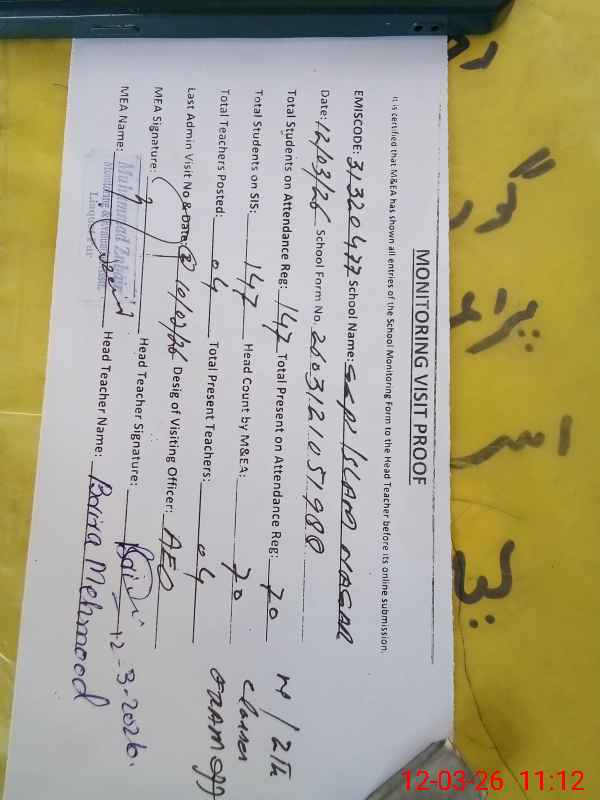 MONITORING VISIT PROOF
It is certified that M&EA has shown all entries of the School Monitoring Form to the Head Teacher before its online submission.
EMISCODE: 31320477 School Name: ISLAM NAGAR
Date: 12/03/26 School Form No. 2603121051980
Total Students on Attendance Reg: 147 Total Present on Attendance Reg: 70
Total Students on SIS: 147 Head Count by M&EA: 70
Total Teachers Posted: 04 Total Present Teachers: 04
Last Admin Visit No & Date: 10/02/26 Desig of Visiting Officer: AEO
MEA Signature: Head Teacher Signature: 12-3-2026.
MEA Name: Head Teacher Name: Mehmood
Muhammad Zubair
Monitoring & Evaluation
classes
12-03-26 11:12